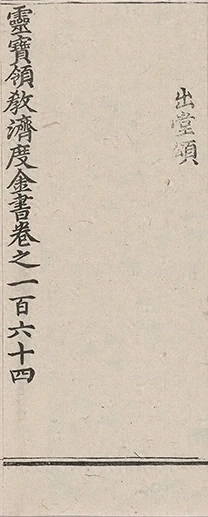 出堂頌
靈寶領教濟度金書卷之一百六十四